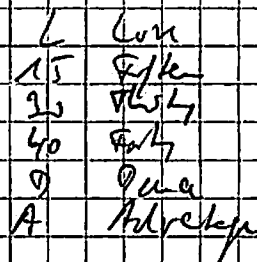 L Love
15 Fifteen
30 Thirty
40 Forty
D Deuce
A Advantage